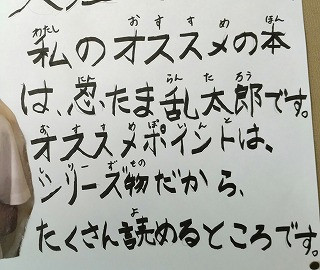 私のオススメの本
は、忍たま乱太郎です。
オススメポイントは、
シリーズ物だから、
たくさん読めるところです。